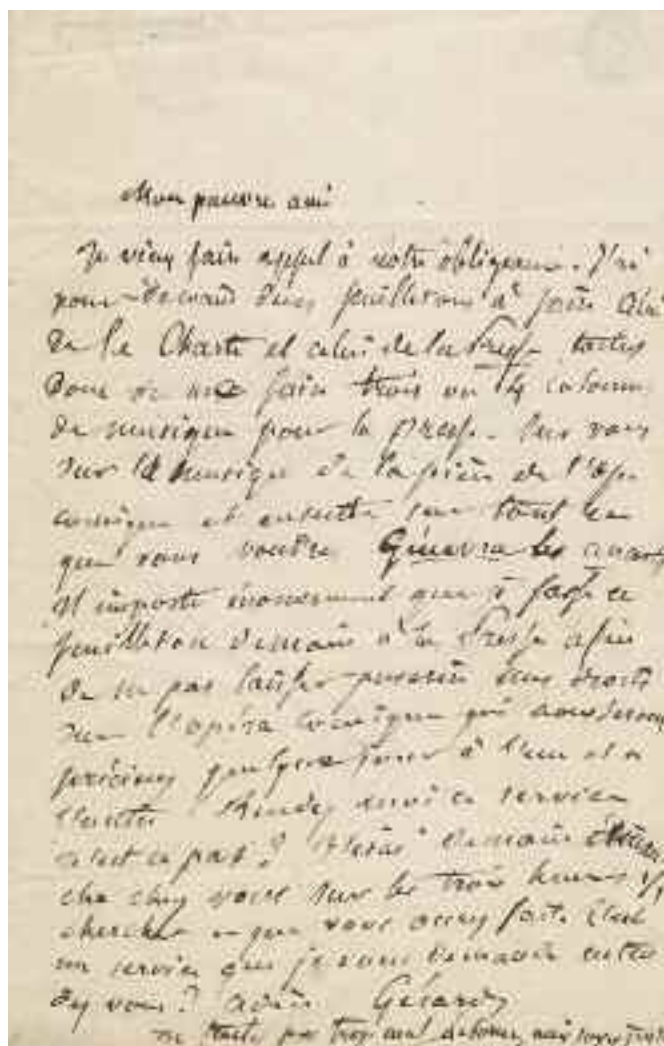 Mon pauvre ami
Je viens faire appel à votre obligeance. J'ai
pour demain deux feuilletons à faire celui
de la Charte et celui de la Presse
donc de me faire trois ou 4 colonnes
de musique pour la presse.
sur la musique de la pièce de l'Opé
comique et ensuite sur tout ce
que vous voudrez Guevra les
Il importe énormément que je fasse ce
feuilleton demain à la Presse afin
de ne pas laisser nos droits
sur l'opéra comique qui nous seront
précieux quelque jour à l'un et à
l'autre Rendez moi ce service
n'est ce pas? demain
che chez vous sur les trois heures
chercher ce que vous aurez fait. C'est
un service que je vous demande enten
dez vous? adieu Gérard
pas trop mal